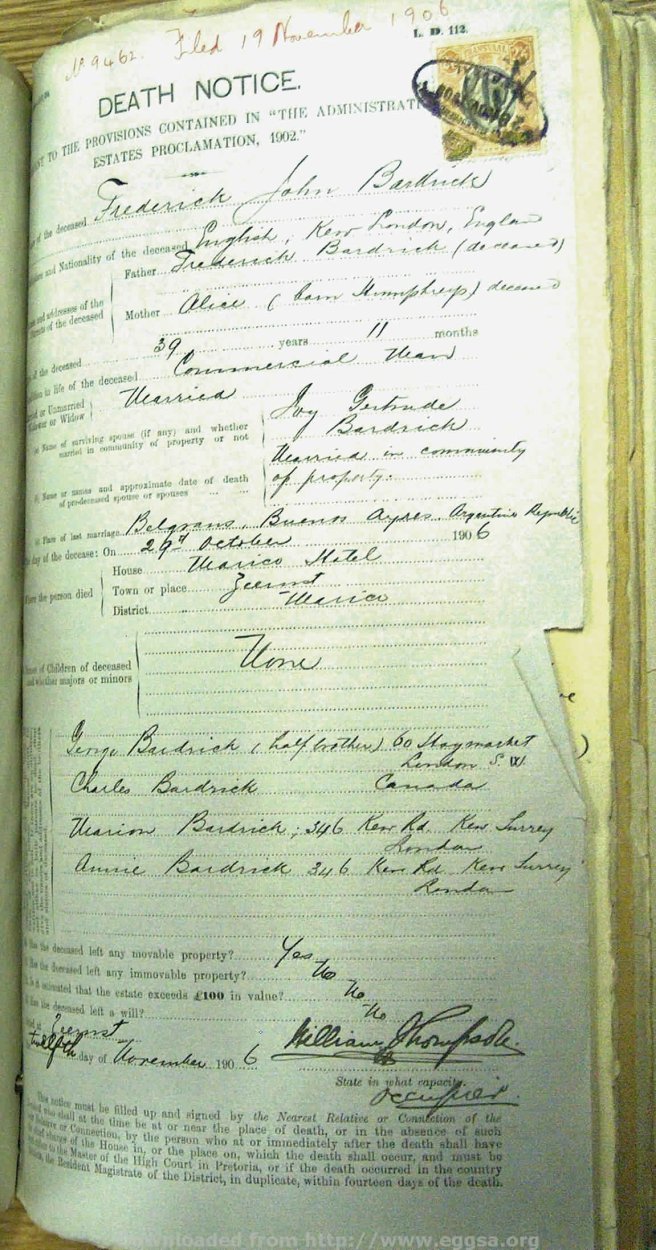 No 9462. Filed 19 November 1906
L. D. 112.
DEATH NOTICE.
TO THE PROVISIONS CONTAINED IN "THE ADMINISTRATI
ESTATES PROCLAMATION, 1902."
of the deceased Frederick John Bardrick
and Nationality of the deceased English, Kew London, England
Father Frederick Bardrick (deceased)
and addresses of the
of the deceased
Mother Alice (born Humphreys) deceased
of the deceased 39 years 11 months
in life of the deceased Commercial Man
or Unmarried
or Widow
Married
Name of surviving spouse (if any) and whether
married in community of property or not
Joy Gertrude
Bardrick
Married in community
of property.
Name or names and approximate date of death
of pre-deceased spouse or spouses
Place of last marriage Belgrano, Buenos Ayres. Argentine Republic
day of the decease: On 29th October 1906
the person died
House Marico Hotel
Town or place Zeerust
District Marico
of Children of deceased
and whether majors or minors
None
George Bardrick (half brother) 60 Haymarket
London S.W
Charles Bardrick Canada
Marion Bardrick; 346 Kew Rd. Kew Surrey
London
Annie Bardrick 346 Kew Rd Kew Surrey
London
Has the deceased left any movable property? Yes
Has the deceased left any immovable property? No
Is it estimated that the estate exceeds £100 in value? No
Has the deceased left a will? No
Zeerust
twelfth day of November 1906 William Thompson
State in what capacity.
occupier
This notice must be filled up and signed by the Nearest Relative or Connection of the
who shall at the time be at or near the place of death, or in the absence of such
or Connection, by the person who at or immediately after the death shall have
charge of the House in, or the place on, which the death shall occur, and must be
to the Master of the High Court in Pretoria, or if the death occurred in the country
the Resident Magistrate of the District, in duplicate, within fourteen days of the death.
Downloaded from http://www.eggsa.org